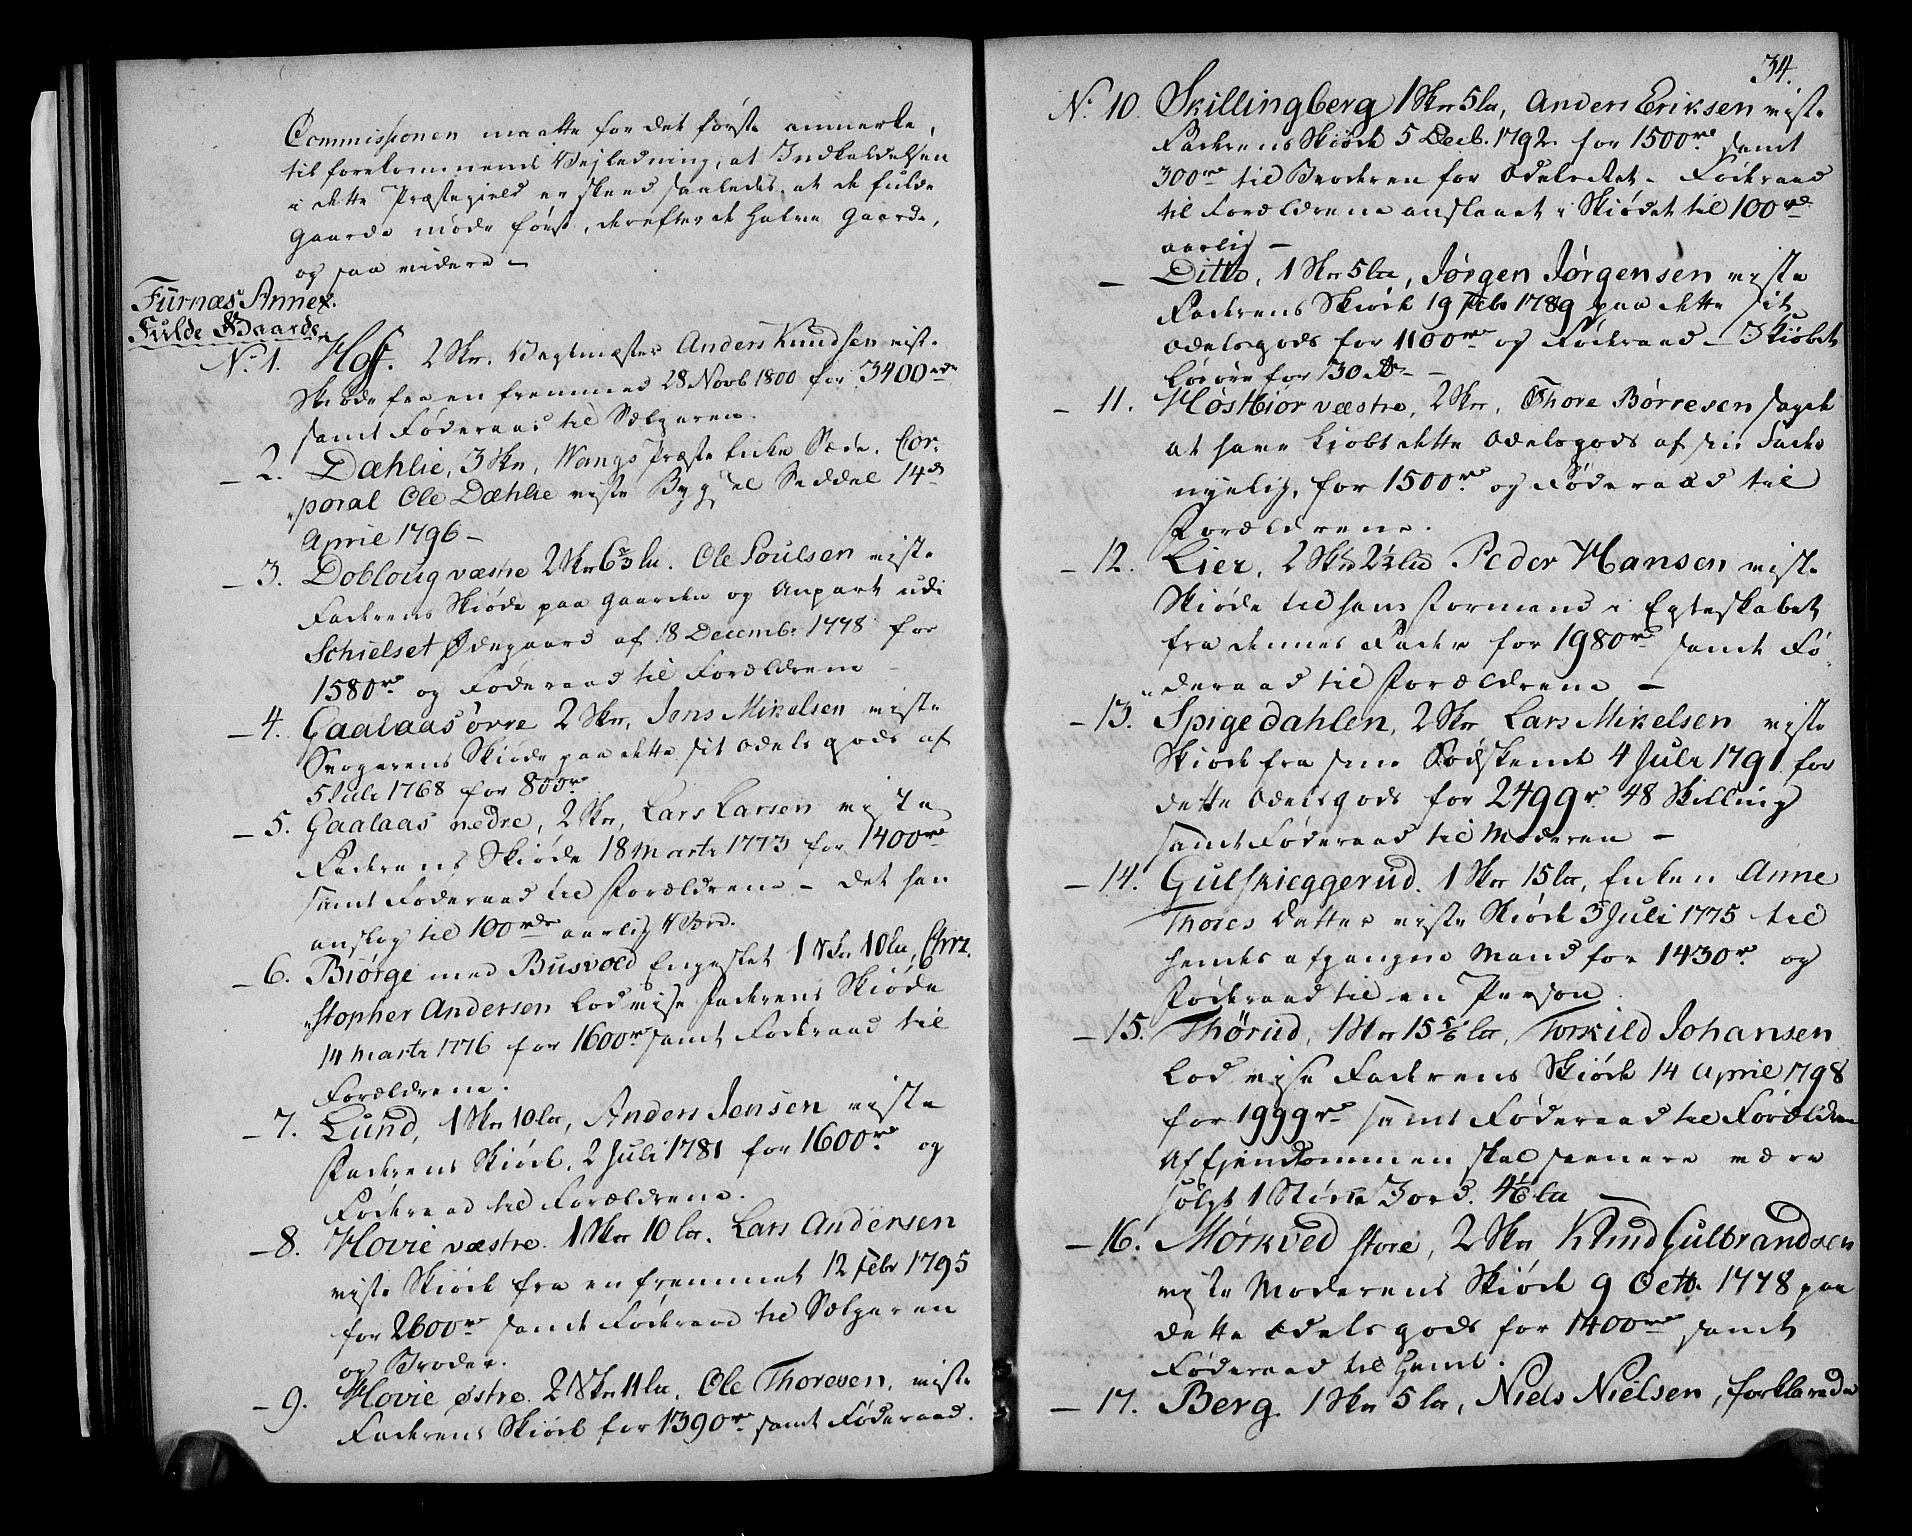 Commissionen maatte for det första anmerke,
til forekommende Vejledning, at Indkaldelsen
i dette Præstegield er skeed saaledes, at de fulde
Gaarde møde først, derefter de halve Gaarde,
og saa videre –
Furnæs Annex.
Fulde Gaarde.
No. 1. Hoff. 2 Skn. Vagtmæster Anders Knudsen viste
Skiøde fra en fremmed 28 Novb 1800 for 3400 rdr
samt Føderaad til Sælgeren.
– 2. Dæhlie, 3 Skn, Wangs Præste Enke Sæde. Cor-
poral Ole Dæhlie viste Bygsel Seddel 14de
April 1796 –
– 3. Dobloug væstre 2 Skn 6 2/3 lu. Ole Poulsen viste
Faderens Skiøde paa Gaarden og Anpart udi
Schielset Ødegaard af 18 Decembr 1778 for
1580 rd og Føderaad til Forældrene –
– 4. Gaalaas øvre 2 Skn, Jens Mikelsen viste
Svogerens Skiøde paa dette sit Odels gods af
5 Juli 1768 for 800 rd
– 5. Gaalaas nedre, 2 Skn, Lars Larsen viste
Faderens Skiøde 18 Marti 1773 for 1400 rd
samt Føderaad til Forældrene – det han
anslog til 100 rdr aarlig Værd.
– 6. Biørge med Busvold Engeslet 1 Skn 10 lu, Chri-
stopher Andersen lod vise Faderens Skiøde
14 Marti 1776 for 1600 rd samt Føderaad til
Forældrene.
– 7. Lund, 1 Skn 10 lu, Anders Jensen viste
Faderens Skiøde, 2 Juli 1781 for 1600 rd og
Føderaad til Forældrene.
– 8. Hovie væstre 1 Skn 10 lu. Lars Andersen
viste Skiøde fra en fremmet 12 Febr 1795
for 2600 rd samt Føderaad til Sælgeren
og Broder.
– 9. Hovie østre 2 Skn 11 lu. Ole Thoresen, viste
Faderens Skiøde for 1390 rd samt Føderaad.
34.
No. 10. Skillingberg 1 Skn 5 lu, Anders Eriksen viste
Faderens Skiøde 5 Decb. 1792 for 1500 rd samt
300 rd til Broderen for Odelsret – Føderaad
til Forældrene anslaaet i Skiødet til 100 rd
aarlig –
– Ditto, 1 Skn 5 lu, Jørgen Jørgensen viste
Faderens Skiøde 19 Febr 1789 paa dette sit
Odelsgods for 1100 rd og Føderaad –
Løsøre for 130 rd –
– 11. Høstbiør væstre, 2 Skn, Thore Børresen sagde
at have kiøbt dette Odelsgods af sin Fader
nyelig, for 1500 rd og Føderaad til
Forældrene.
– 12. Lier, 2 Skn 2 1/2 lu Peder Hansen viste
Skiøde til hans Formand i Egteskabet
fra dennes Fader for 1980 rd samt Fø-
deraad til Forældrene –
– 13. Spigedahlen, 2 Skn Lars Mikelsen viste
Skiøde fra sine Sødskende 4 Juli 1791 for
dette Odelsgods for 2499 r 48 Skilling
samt Føderaad til Moderen –
– 14. Gulskieggerud. 1 Skn 15 lu, Enken Anne
Thores Datter viste Skiøde 3 Juli 1775 til
hendes afgangne Mand for 1430 r. og
Føderaad til en Person
– 15. Thørud, 1 Skn 15 5/6 lu, Torkild Johansen
lod vise Faderens Skiøde 14 April 1798
for 1999 rd samt Føderaad til Forældrene
Af Ejendommen skal seenere være
solgt 1 Støcke Jord. 4 1/6 lu –
– 16. Mørkved store, 2 Skn Knud Gulbrandsen
viste Moderens Skiøde 9 Octb. 1778 paa
dette Odels gods for 1400 rd samt
Føderaad til hende.
– 17. Berg 1 Skn 5 lu, Niels Nielsen, forklarede